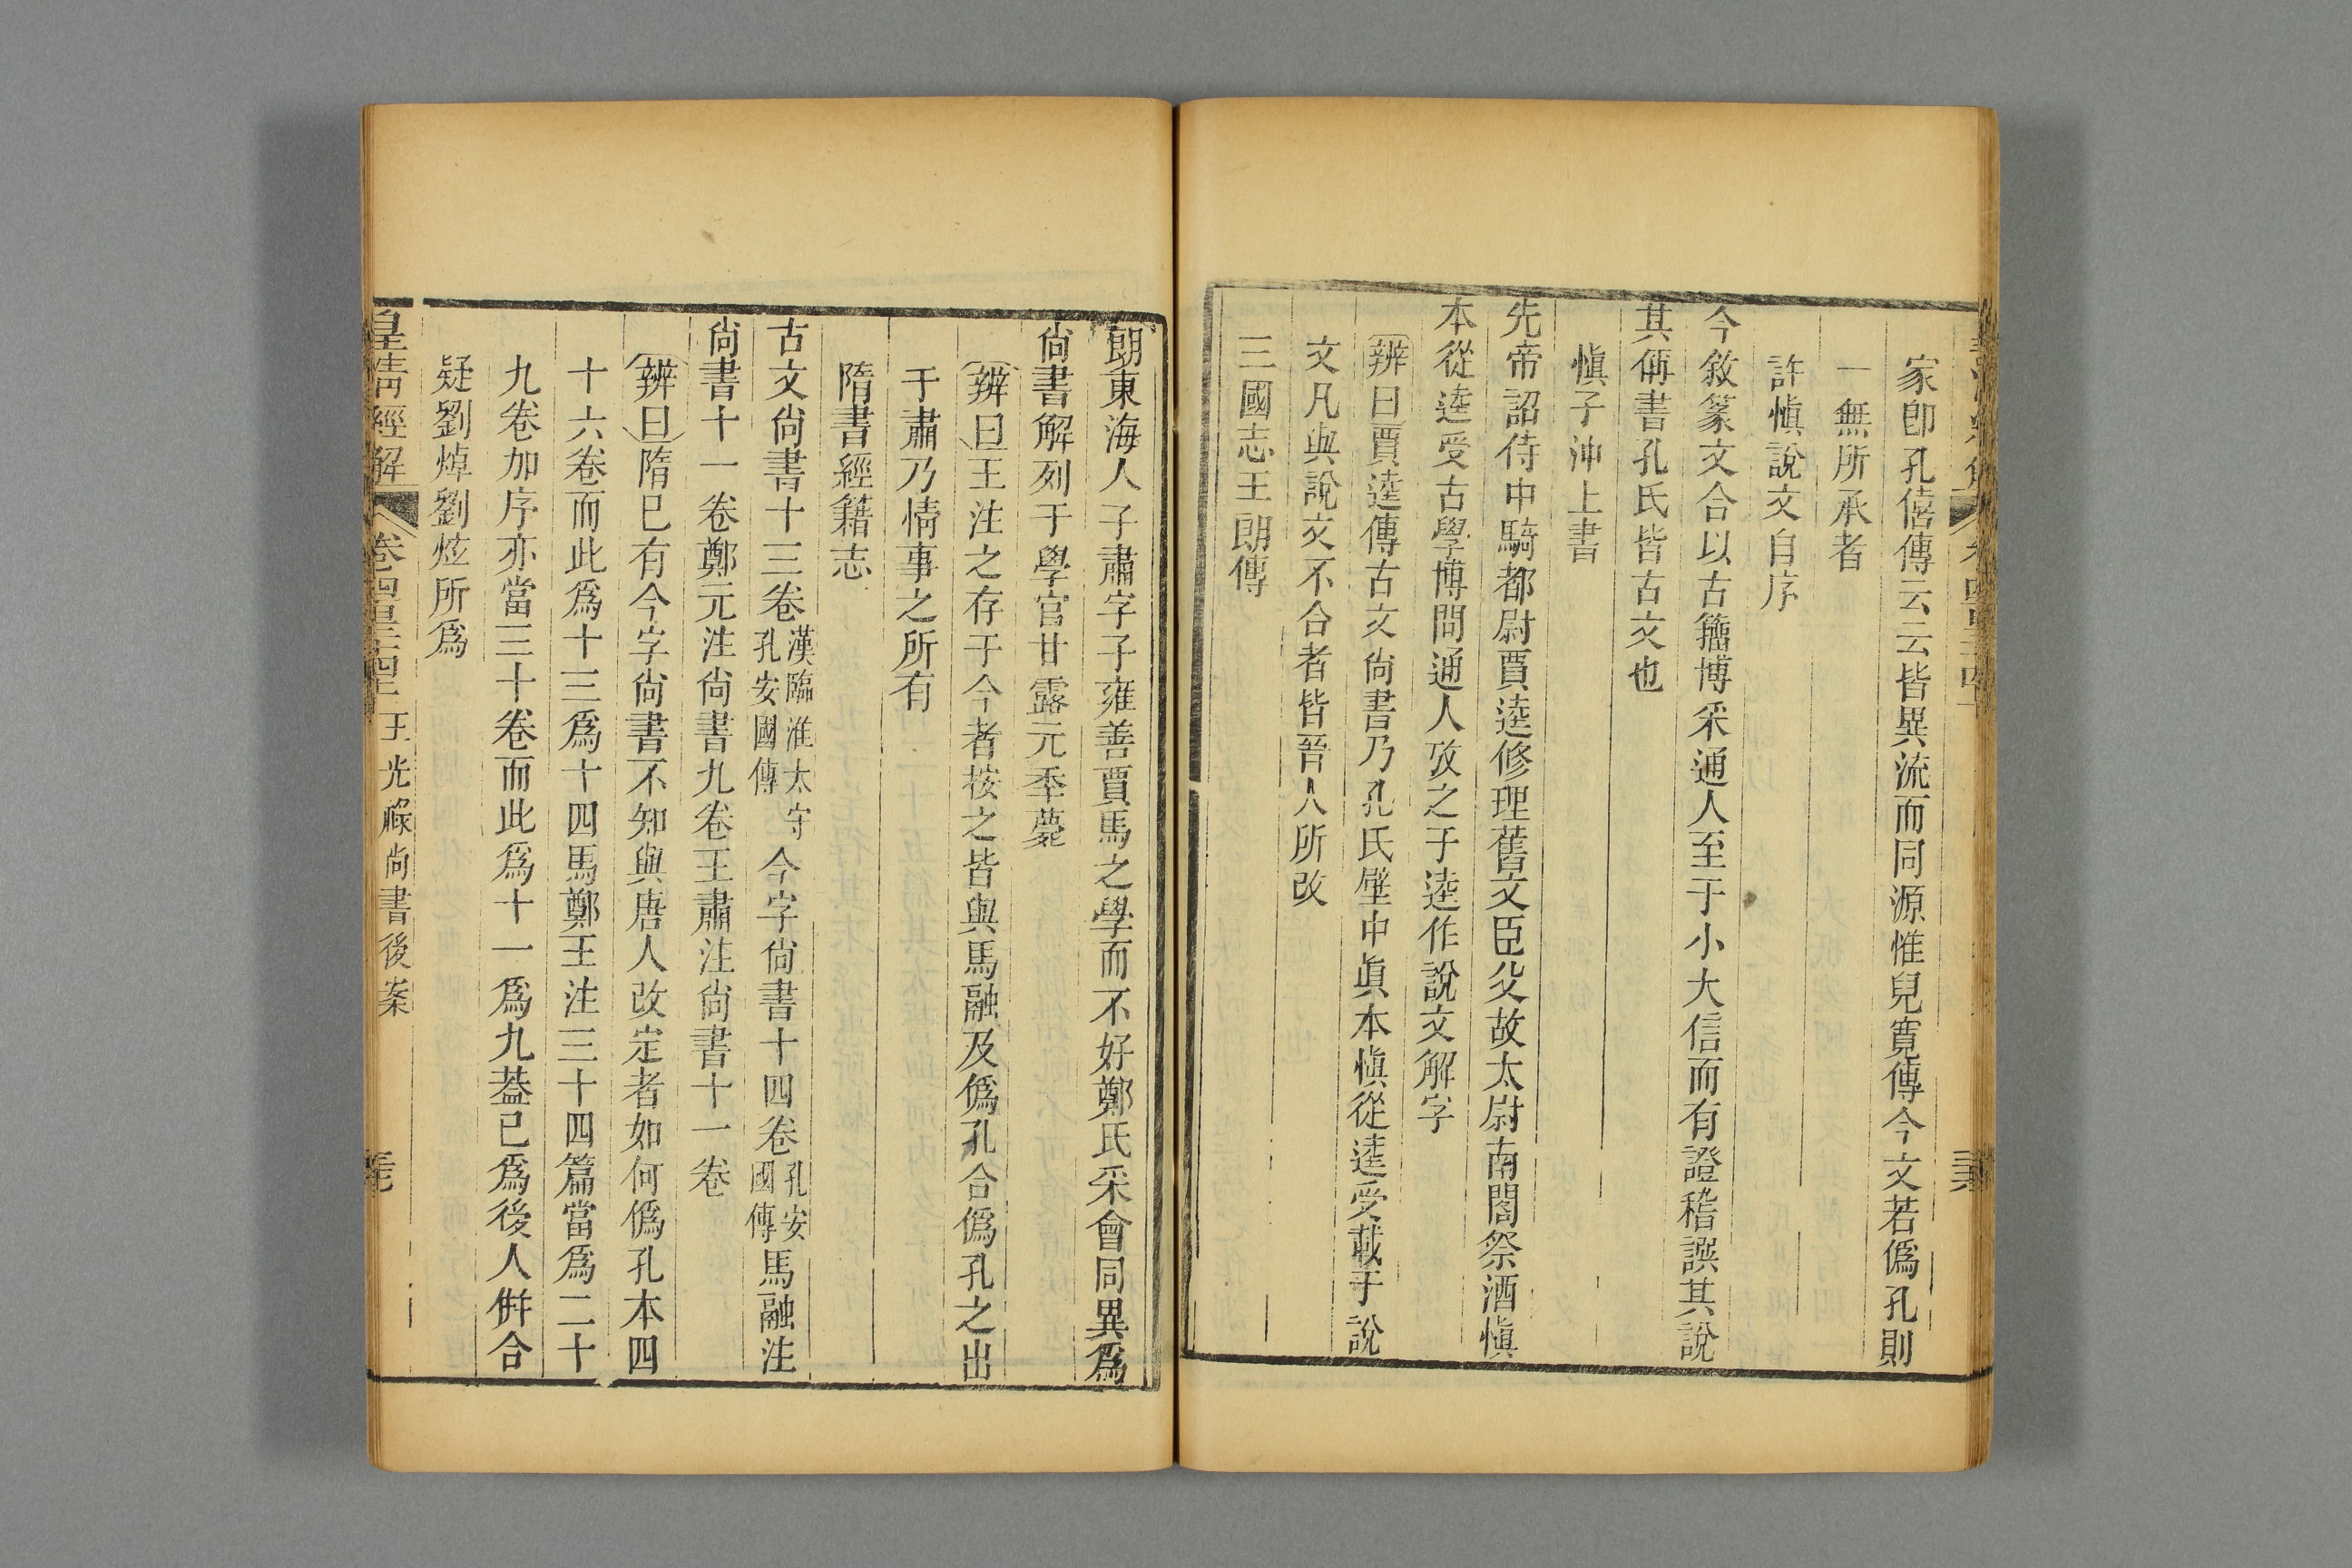 家卽孔僖傳云云皆異流而同源惟兒寬傳今文若僞孔則
一無所承者
許愼說文自序
今敘篆文合以古籀博采通人至于小大信而有證稽譔其說
其偁書孔氏皆古文也
愼子沖上書
先帝詔侍中騎都尉賈逵修理舊文臣父故太尉南閣祭酒愼
本從逵受古學博問通人攷之于逵作說文解字
辨曰賈逵傳古文尙書乃孔氏壁中眞本愼從逵受載于說
文凡與說文不合者皆晉人所改
三國志王朗傳
朗東海人子肅字子雍善賈馬之學而不好鄭氏采會同異爲
尙書解列于學官甘露元秊薨
辨曰王注之存于今者按之皆與馬融及僞孔合僞孔之出
于肅乃情事之所有
隋書經籍志
古文尙書十三卷漢臨淮太守孔安國傳今字尙書十四卷孔安國傳馬融注
尙書十一卷鄭元注尙書九卷王肅注尙書十一卷
辨曰隋已有今字尙書不知與唐人改定者如何僞孔本四
十六卷而此爲十三爲十四馬鄭王注三十四篇當爲二十
九卷加序亦當三十卷而此爲十一爲九葢已爲後人併合
疑劉焯劉炫所爲
皇淸經解 卷四百三十四上 王光祿尙書後案